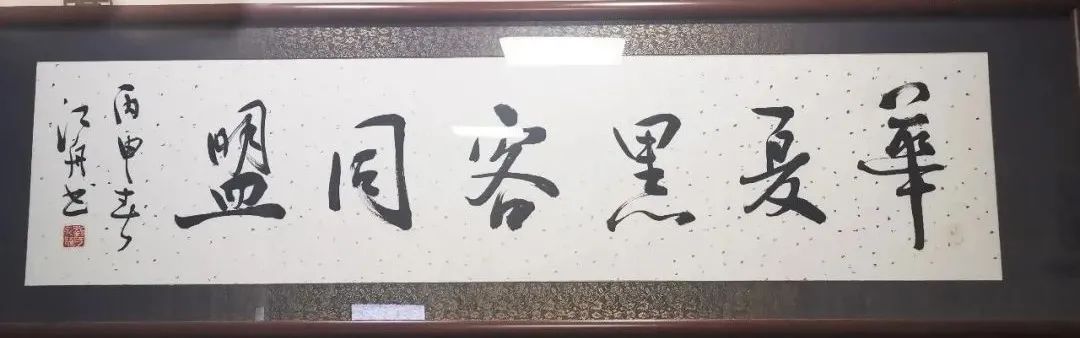 華夏黑客同盟
丙申春
江舟书